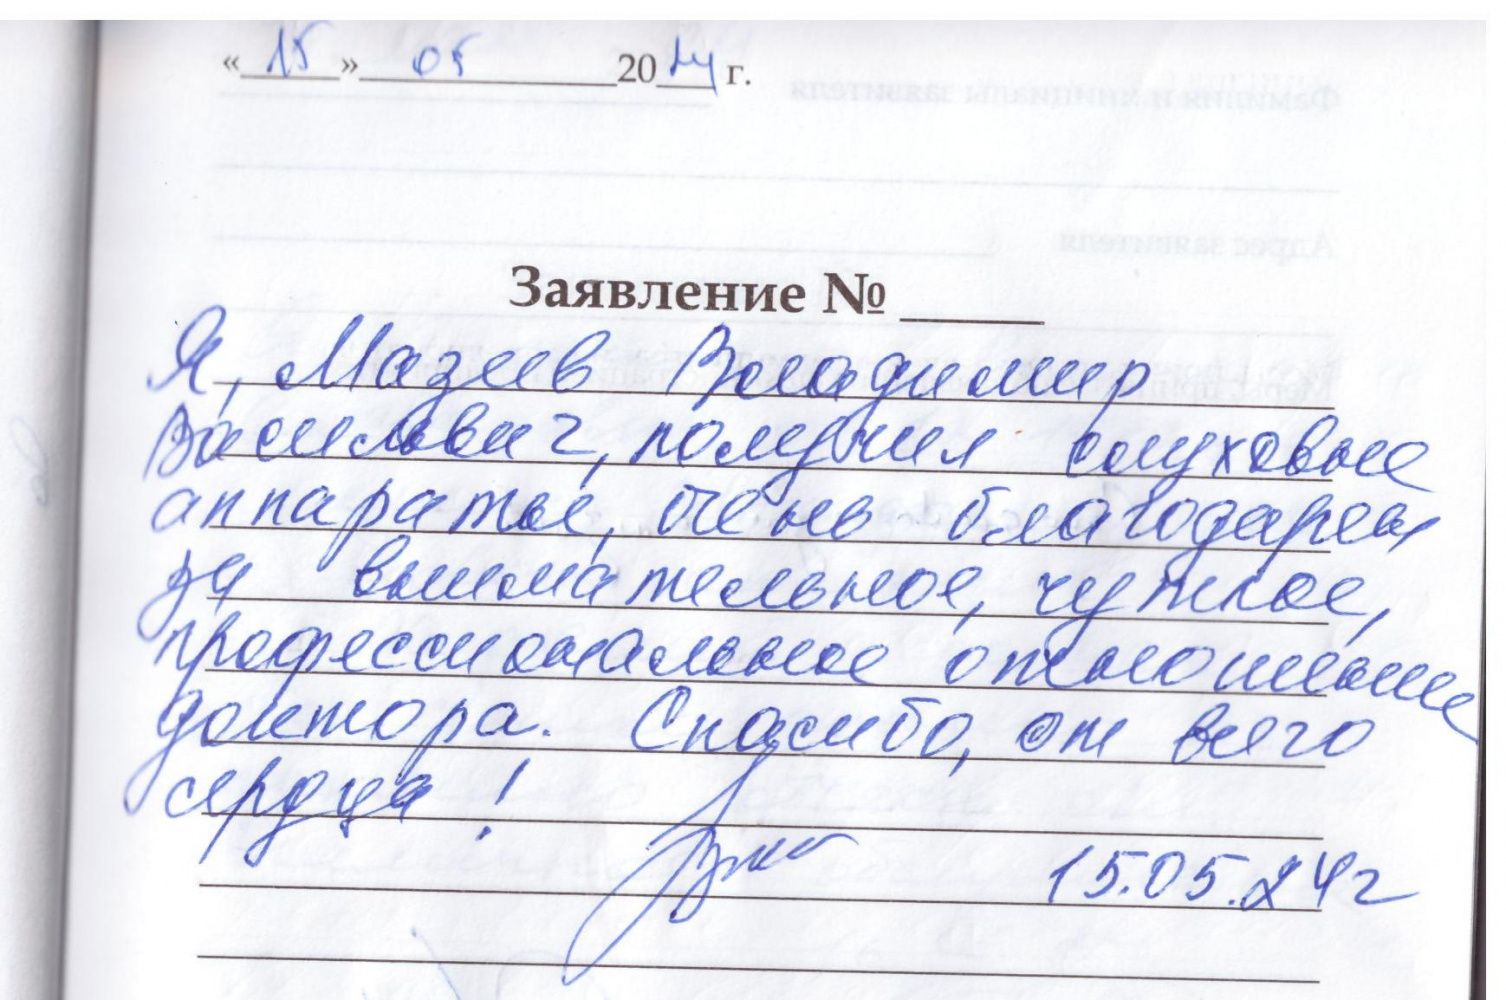 «15» 05 2024 г.
Заявление № ____
Я, Мазеев Владимир
Васильвич, получил слуховые
аппараты, очень благодарен
за внимательное, чуткое,
профессиональное отношение
доктора. Спасибо, от всего
сердца!
15.05.24г